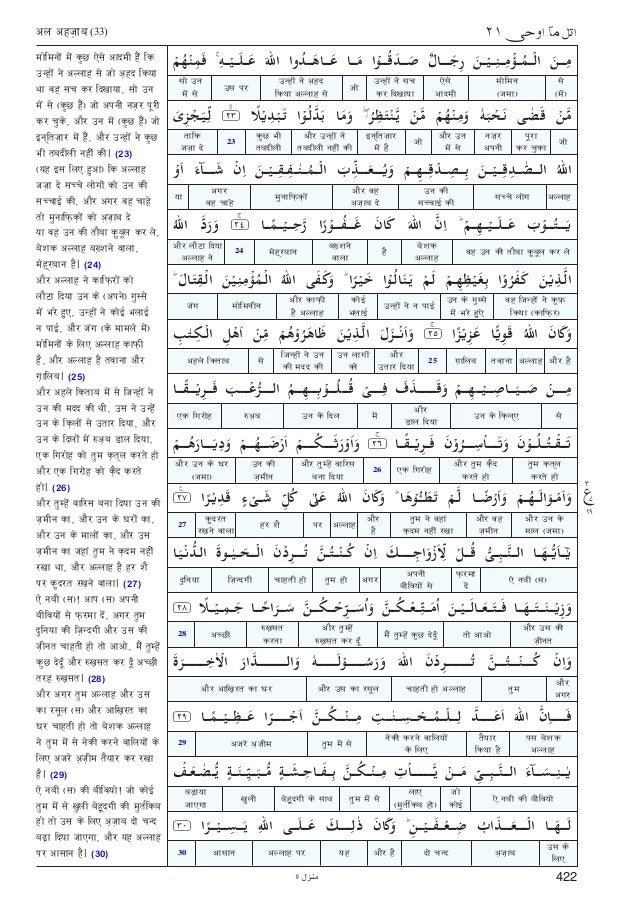 अल अहज़ाब (33)
اتل مآ اوحی ۲۱
मोमिनों में कुछ ऐसे आदमी हैं कि
उन्हों ने अल्लाह से जो अ़हद किया
था वह सच कर दिखाया, सो उन
में से (कुछ हैं) जो अपनी नज़र पूरी
कर चुके, और उन में (कुछ हैं) जो
इन्तिज़ार में हैं, और उन्हों ने कुछ
भी तबदीली नहीं की। (23)
(यह इस लिए हुआ) कि अल्लाह
जज़ा दे सच्चे लोगों को उन की
सच्चाई की, और अगर वह चाहे
तो मुनाफ़िक़ों को अ़ज़ाब दे
या वह उन की तौबा कुबूल कर ले,
बेशक अल्लाह बख़्शने वाला,
मेह्रबान है। (24)
और अल्लाह ने काफ़िरों को
लौटा दिया उन के (अपने) गुस्से
में भरे हुए, उन्हों ने कोई भलाई
न पाई, और जंग (के मामले में)
मोमिनों के लिए अल्लाह काफ़ी
है, और अल्लाह है तवाना और
ग़ालिब। (25)
और अहले किताब में से जिन्हों ने
उन की मदद की थी, उस ने उन्हें
उन के क़िलों से उतार दिया, और
उन के दिलों में रुअ़ब डाल दिया,
एक गिरोह को तुम क़त्ल करते हो
और एक गिरोह को क़ैद करते
हो। (26)
और तुम्हें वारिस बना दिया उन की
ज़मीन का, और उन के घरों का,
और उन के मालों का, और उस
ज़मीन का जहां तुम ने क़दम नहीं
रखा था, और अल्लाह है हर शै
पर कुदरत रखने वाला। (27)
ऐ नबी (स)! आप (स) अपनी
बीवियों से फ़रमा दें, अगर तुम
दुनिया की ज़िन्दगी और उस की
ज़ीनत चाहती हो तो आओ, मैं तुम्हें
कुछ देदूँ और रुख़्सत कर दूँ अच्छी
तरह रुख़्सत। (28)
और अगर तुम अल्लाह और उस
का रसूल (स) और आख़िरत का
घर चाहती हो तो बेशक अल्लाह
ने तुम में से नेकी करने वालियों के
लिए अजरे अ़ज़ीम तैयार कर रखा
है। (29)
ऐ नबी (स) की बीवियो! जो कोई
तुम में से खुली बेहूदगी की मुर्तकिब
हो तो उस के लिए अ़ज़ाब दो चन्द
बढ़ा दिया जाएगा, और यह अल्लाह
पर आसान है। (30)
مِنَ الْمُؤْمِنِيْنَ رِجَالٌ صَدَقُوْا مَا عَاهَدُوا اللهَ عَلَيْهِ ۚ فَمِنْهُمْ
से (में) मोमिन (जमा) ऐसे आदमी उन्हों ने सच कर दिखाया जो उन्हों ने अ़हद किया अल्लाह से उस पर सो उन में से
مَّنْ قَضٰى نَحْبَهٗ وَمِنْهُمْ مَّنْ يَّنْتَظِرُ ۖ وَمَا بَدَّلُوْا تَبْدِيْلًا ﴿٢٣﴾ لِّيَجْزِىَ
जो पूरा कर चुका नज़र अपनी और उन में से जो इन्तिज़ार में है और उन्हों ने तबदीली नहीं की कुछ भी तबदीली 23 ताकि जज़ा दे
اللهُ الصّٰدِقِيْنَ بِصِدْقِهِمْ وَيُعَذِّبَ الْمُنٰفِقِيْنَ اِنْ شَآءَ اَوْ
अल्लाह सच्चे लोग उन की सच्चाई की और वह अ़ज़ाब दे मुनाफ़िक़ों अगर वह चाहे या
يَتُوْبَ عَلَيْهِمْ ۚ اِنَّ اللهَ كَانَ غَفُوْرًا رَّحِيْمًا ﴿٢٤﴾ وَرَدَّ اللهُ
वह उन की तौबा कुबूल कर ले बेशक अल्लाह है बख़्शने वाला मेह्रबान 24 और लौटा दिया अल्लाह ने
الَّذِيْنَ كَفَرُوْا بِغَيْظِهِمْ لَمْ يَنَالُوْا خَيْرًا ؕ وَكَفَى اللهُ الْمُؤْمِنِيْنَ الْقِتَالَ ؕ
वह जिन्हों ने कुफ़्र किया (काफ़िर) उन के गुस्से में भरे हुए उन्हों ने न पाई कोई भलाई और काफ़ी है अल्लाह मोमिनीन जंग
وَكَانَ اللهُ قَوِيًّا عَزِيْزًا ﴿٢٥﴾ وَاَنْزَلَ الَّذِيْنَ ظَاهَرُوْهُمْ مِّنْ اَهْلِ الْكِتٰبِ
और है अल्लाह तवाना ग़ालिब 25 और उतार दिया उन लोगों को जिन्हों ने उन की मदद की से अहले किताब
مِنْ صَيَاصِيْهِمْ وَقَذَفَ فِىْ قُلُوْبِهِمُ الرُّعْبَ فَرِيْقًا
से उन के क़िलए और डाल दिया में उन के दिल रुअ़ब एक गिरोह
تَقْتُلُوْنَ وَتَاْسِرُوْنَ فَرِيْقًا ﴿٢٦﴾ وَاَوْرَثَكُمْ اَرْضَهُمْ وَدِيَارَهُمْ
तुम क़त्ल करते हो और तुम क़ैद करते हो एक गिरोह 26 और तुम्हें वारिस बना दिया उन की ज़मीन और उन के घर (जमा)
وَاَمْوَالَهُمْ وَاَرْضًا لَّمْ تَطَـُٔوْهَا ؕ وَكَانَ اللهُ عَلٰى كُلِّ شَىْءٍ قَدِيْرًا ﴿٢٧﴾
और उन के माल (जमा) और वह ज़मीन तुम ने वहां क़दम नहीं रखा और है अल्लाह पर हर शै कुदरत रखने वाला 27
يٰۤاَيُّهَا النَّبِىُّ قُلْ لِّاَزْوَاجِكَ اِنْ كُنْتُنَّ تُرِدْنَ الْحَيٰوةَ الدُّنْيَا
ऐ नबी (स) फ़रमा दें अपनी बीवियों से अगर तुम हो चाहती हो ज़िन्दगी दुनिया
وَزِيْنَتَهَا فَتَعَالَيْنَ اُمَتِّعْكُنَّ وَاُسَرِّحْكُنَّ سَرَاحًا جَمِيْلًا ﴿٢٨﴾
और उस की ज़ीनत तो आओ मैं तुम्हें कुछ देदूँ और तुम्हें रुख़्सत कर दूँ रुख़्सत करना अच्छी 28
وَاِنْ كُنْتُنَّ تُرِدْنَ اللهَ وَرَسُوْلَهٗ وَالدَّارَ الْاٰخِرَةَ
और अगर तुम चाहती हो अल्लाह और उस का रसूल और आख़िरत का घर
فَاِنَّ اللهَ اَعَدَّ لِلْمُحْسِنٰتِ مِنْكُنَّ اَجْرًا عَظِيْمًا ﴿٢٩﴾
पस बेशक अल्लाह तैयार किया है नेकी करने वालियों के लिए तुम में से अजरे अ़ज़ीम 29
يٰنِسَآءَ النَّبِىِّ مَنْ يَّاْتِ مِنْكُنَّ بِفَاحِشَةٍ مُّبَيِّنَةٍ يُّضٰعَفْ
ऐ नबी की बीवियो जो कोई लाए (मुर्तकिब हो) तुम में से बेहूदगी के साथ खुली बढ़ाया जाएगा
لَهَا الْعَذَابُ ضِعْفَيْنِ ؕ وَكَانَ ذٰلِكَ عَلَى اللهِ يَسِيْرًا ﴿٣٠﴾
उस के लिए अ़ज़ाब दो चन्द और है यह अल्लाह पर आसान 30
منزل ٥
422